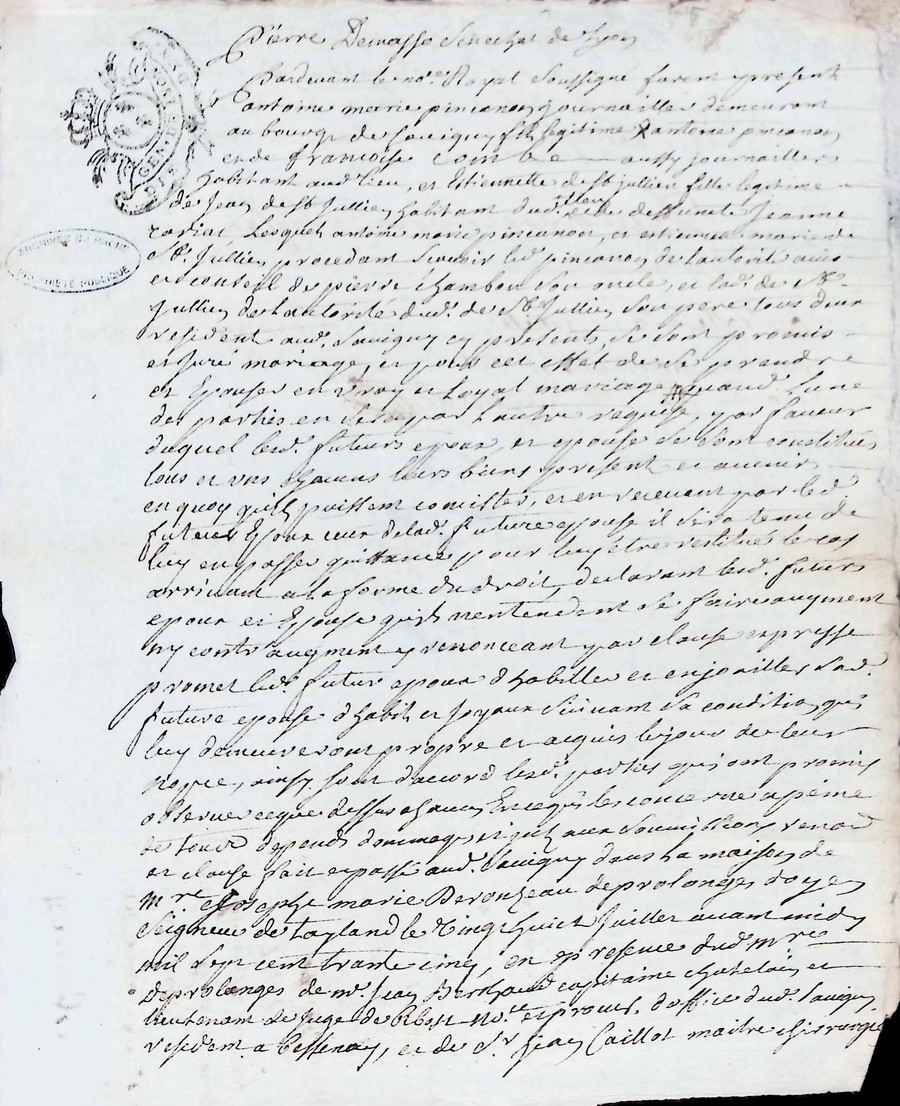 Pierre Demasso Senechal de Lyon
Pardevant le no.re Royal Soussigné furent present
antoine marie pincanon journaillier demeurant
au bourg de Savigny fils legitime d'antoine pincanon
et de francoise combe aussy journaillers
habitant aud. lieu, et Estiennette de St jullien fille legitime
de Jean de St Jullien habitant dud. lieu et de deffuncte Jeanne
Lesquels antoine marie pincanon, et estiennette marie de
St. Jullien procedant Scavoir led. pincanon de lautorité avis
et conseil de pierre Chambon Son oncle, et lad. de St
Jullien de lautorité dud. de St Jullien Son pere tous deux
resident aud. Savigny cy presents, se sont promis
et juré mariage, et pour cet effet de se prendre
et Epouser en vray et Loyal mariage quand Lune
des parties en sera par Lautre requise, par faveur
duquel lesd. futurs epoux, et epouse se sont constitués
tous et uns chacuns leurs biens present et avenir
en quoy qu'ils puissent consister, et en recevant par led
futeur Epoux ceux de lad. future epouse il sera tenu de
luy en passer quittance pour luy être restitués le cas
arrivant a la forme du droit, declarant lesd. futurs
epoux et Epouse qu'ils nentendent se faire augment
ny contr augment y renonceant par clause expresse
promet led. futur epoux d'habiller et enjoailler Sad.
future epouse d'habits et joyaux Suivant Sa condition qui
luy demeureront propre et acquis le jour de leur
nopce, ainsy sont d'accord lesd. parties qui ont promis
observer ce que dessus chacun En ce qu'il les concerne a peine
de tous depends dommages aux Soumissions renon
et clause fait et passé aud. Savigny dans La maison de
Mre. Joseph marie Deronzeau de prolanges doyen
Seigneur de Layland le vingt huict Juillet avant midy
mil Sept cent trante cinq, en presence dud. Mre
Deprolanges de Mr. Jean Berthaud capitaine chatelain et
lieutenant de juge de no.re et procur. d'office dud. Savigny
resident a bessenay, et de Sr Jean Caillot maitre chirurgien
ARCHIVES DU RHONE
PROPRIETE PUBLIQUE